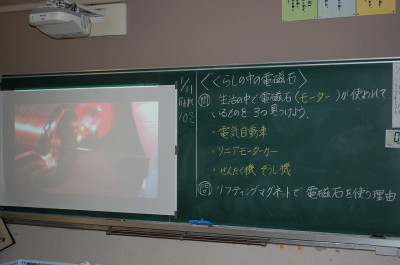 1/11
はれ
10℃
＜くらしの中の電磁石＞
問 生活の中で電磁石(モーター)が使われて
いるものを 3つ見つけよう。
・電気自動車
・リニアモーターカー
・せんたく機 そうじ機
問 リフティングマグネットで 電磁石を使う理由